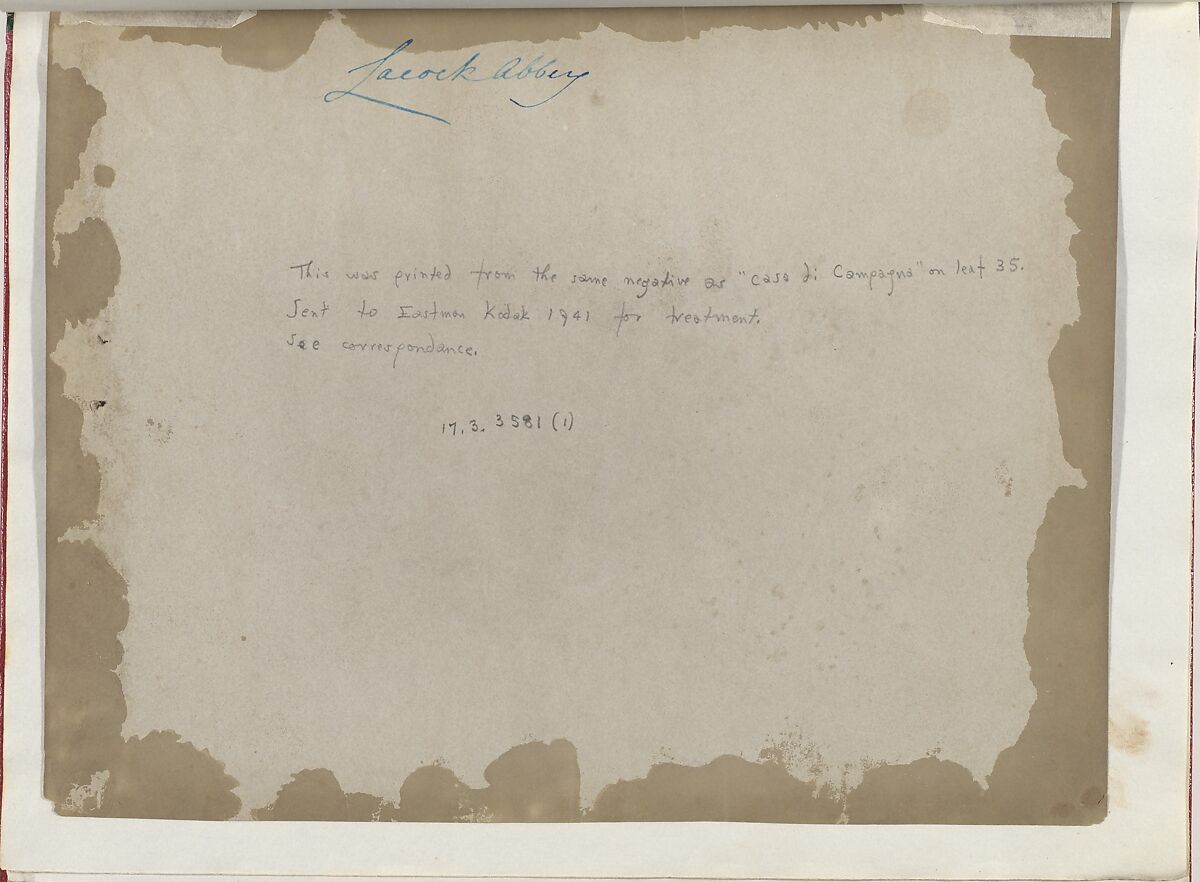 Lacock Abbey
This was printed from the same negative as "casa di Campagna" on leaf 35.
Sent to Eastman Kodak 1941 for treatment.
See correspondance.
17.3.3581(1)